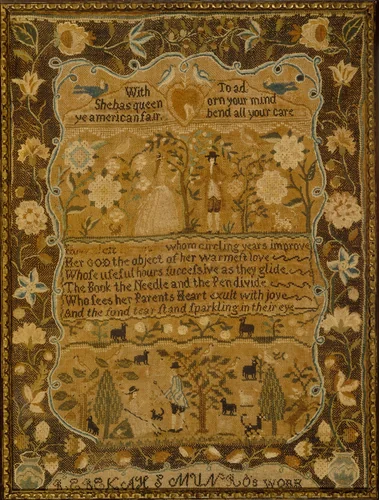 With
Shebas queen
ye american fair.
To ad
orn your mind
bend all your care
whom circling years improve
Her GOD the object of her warmeſt love
Whoſe uſeful hours ſucceſſive as they glide
The Book the Needle and the Pen divide
Who ſees her Parents Heart exult with joye
And the fond tear ſtand ſparkling in their eye
REBEKAH S MUNROs WORK